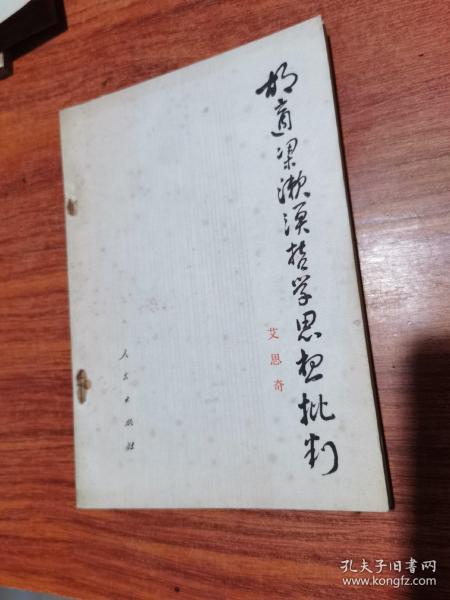 胡適梁漱溟哲学思想批判
艾思奇
人民出版社
孔夫子旧书网
www.kongfz.com